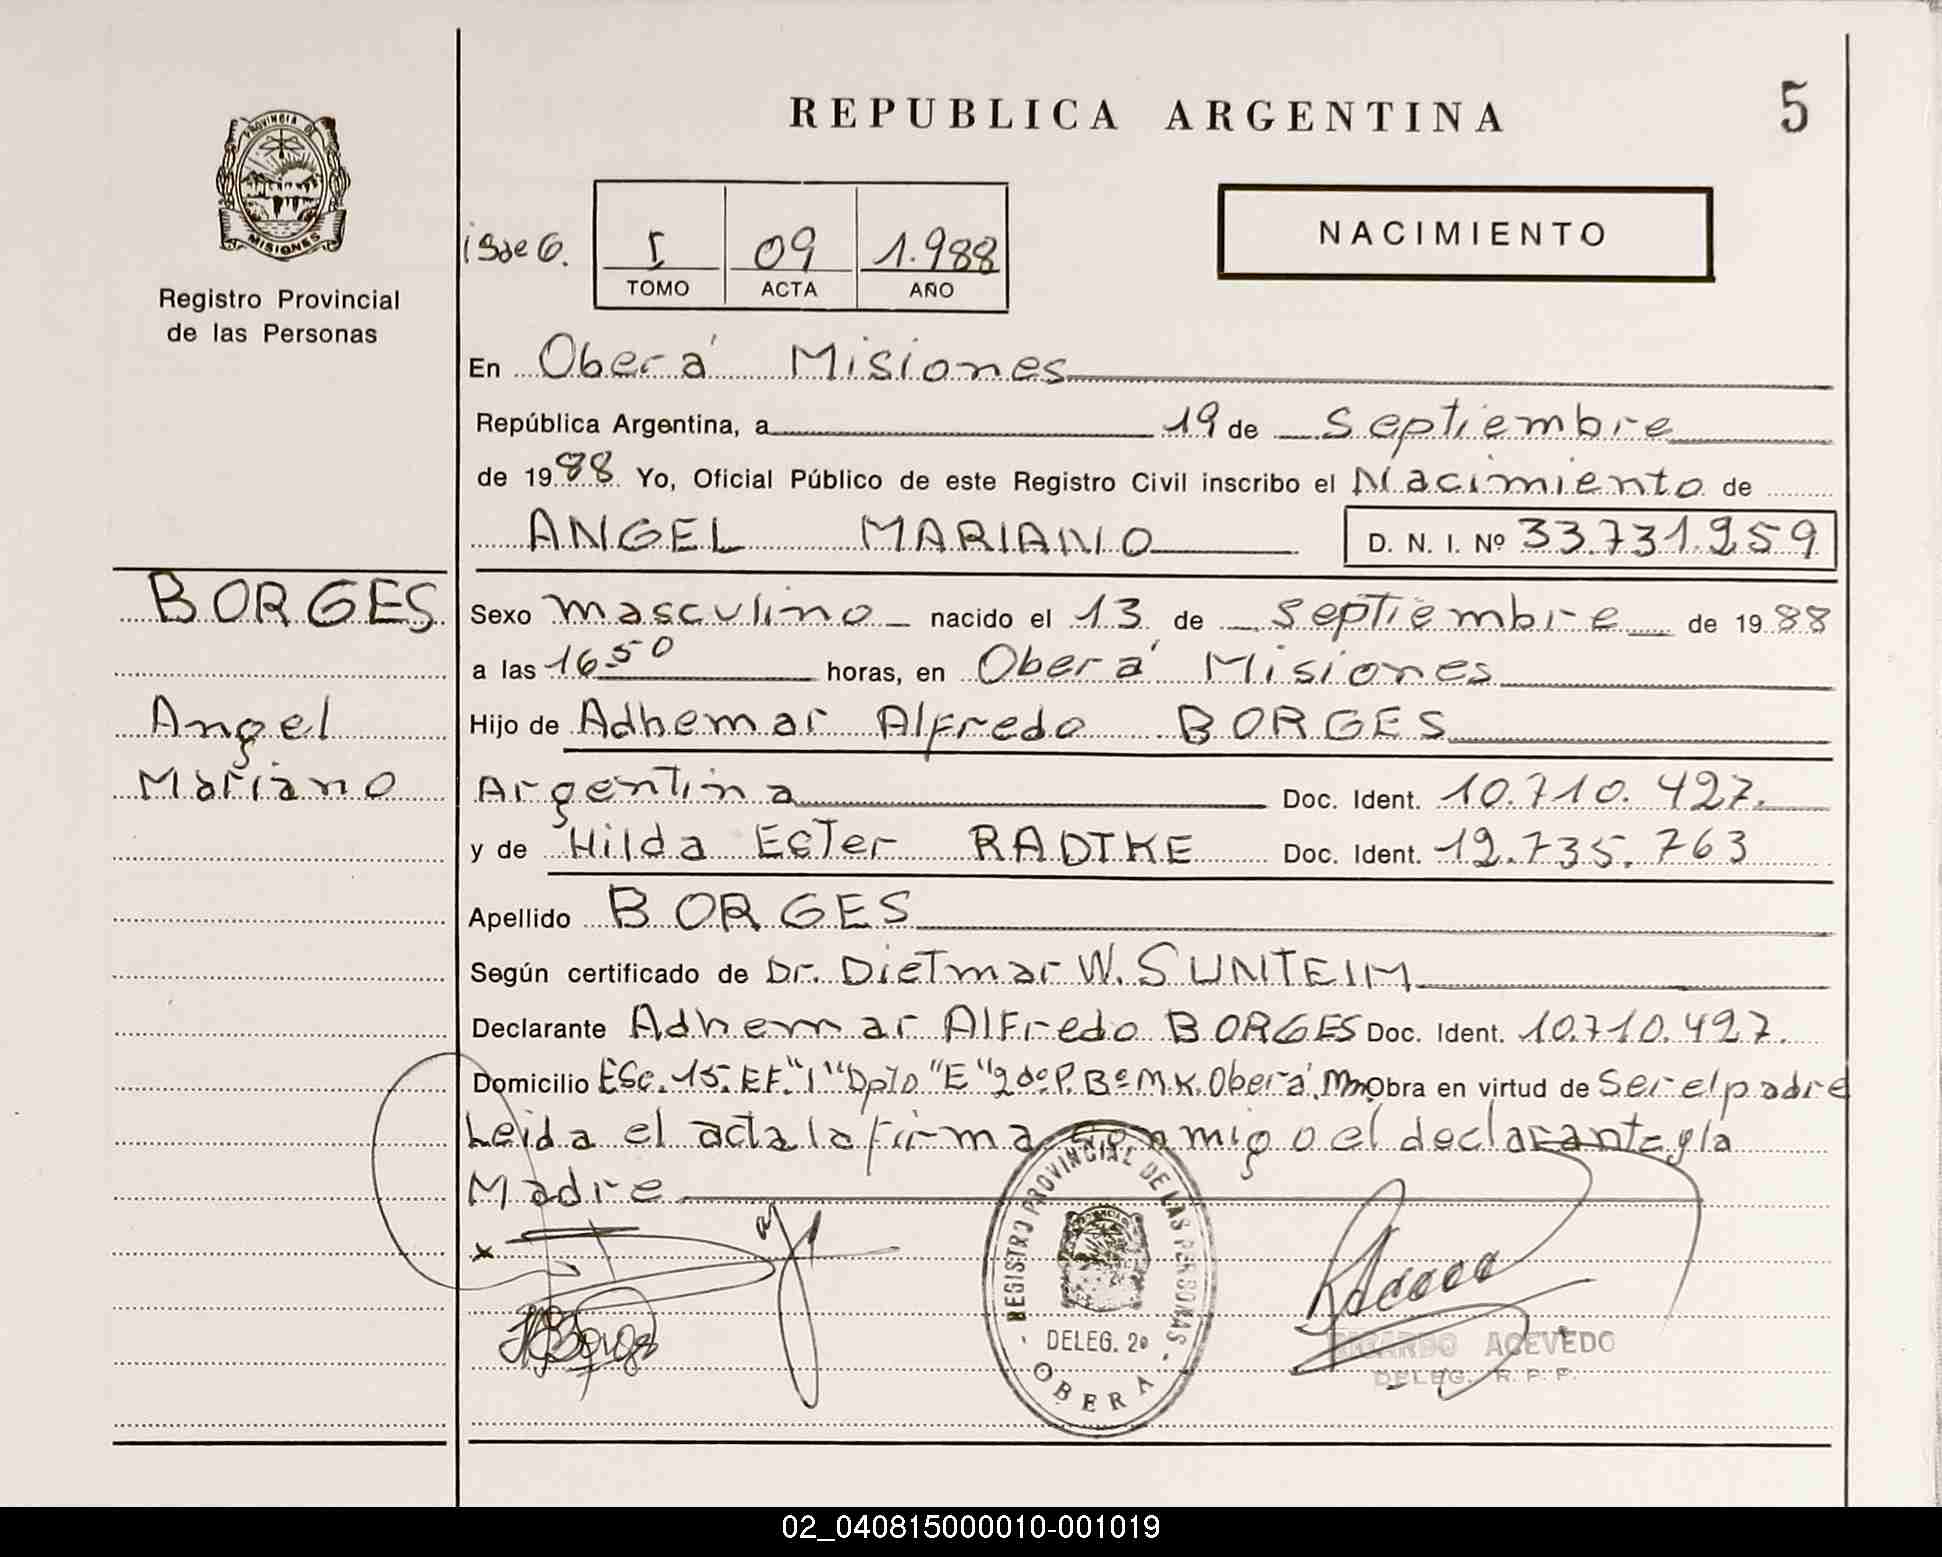 REPUBLICA ARGENTINA
5
PROVINCIA DE
MISIONES
Registro Provincial
de las Personas
I 09 1.988
TOMO ACTA AÑO
NACIMIENTO
En Oberá Misiones
República Argentina, a 19 de Septiembre
de 1988 Yo, Oficial Público de este Registro Civil inscribo el Nacimiento de
ANGEL MARIANO D. N. I. Nº 33.731.259
BORGES
Angel
Mariano
Sexo masculino nacido el 13 de Septiembre de 1988
a las 16 50 horas, en Oberá Misiones
Hijo de Adhemar Alfredo BORGES
Argentina Doc. Ident. 10.710.427.
y de Hilda Ester RADTKE Doc. Ident. 12.735.763
Apellido BORGES
Según certificado de Dr. Dietmar W. SUNTEIM
Declarante Adhemar Alfredo BORGES Doc. Ident. 10.710.427.
Domicilio Esc. 15. EF. "1" Dpto "E" 2do P. Bº M.K. Oberá, Mnes Obra en virtud de Ser el padre
Leida el acta la firma conmigo el declarante y la
Madre
x
REGISTRO PROVINCIAL DE LAS PERSONAS
DELEG. 2º
OBERA
RICARDO ACEVEDO
DELEG. R. P. P.
02_040815000010-001019